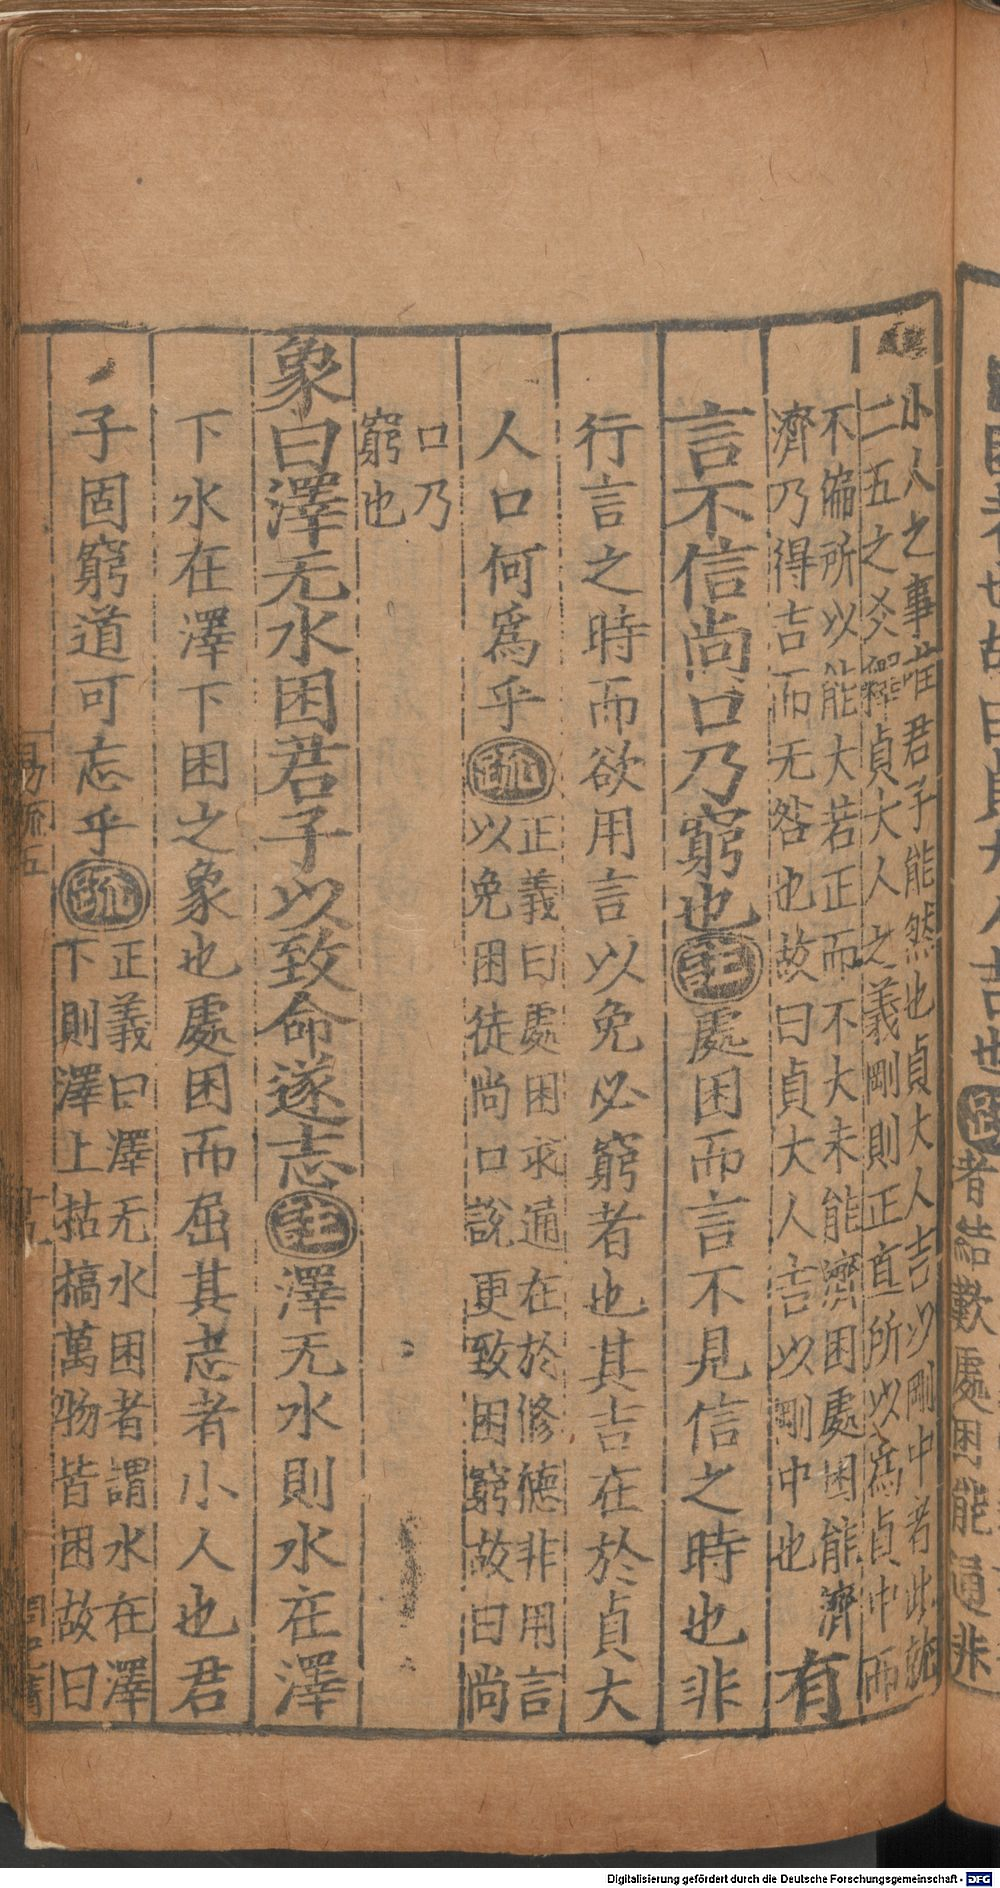 小人之事唯君子能然也貞大人吉以剛中者此就
二五之爻釋貞大人之義剛則正直所以爲貞中而
不偏所以能大若正而不大未能濟困處困能濟
濟乃得吉而无咎也故曰貞大人吉以剛中也
有
言不信尚口乃窮也註處困而言不見信之時也非
行言之時而欲用言以免必窮者也其吉在於貞大
人口何爲乎疏
正義曰處困求通在於修德非用言
以免困徒尚口說更致困窮故曰尚
口乃
窮也
象曰澤无水困君子以致命遂志註澤无水則水在澤
下水在澤下困之象也處困而屈其志者小人也君
子固窮道可忘乎疏
正義曰澤无水困者謂水在澤
下則澤上枯槁萬物皆困故曰
易疏五
者結歎處困能通非
Digitalisierung gefördert durch die Deutsche Forschungsgemeinschaft - DFG